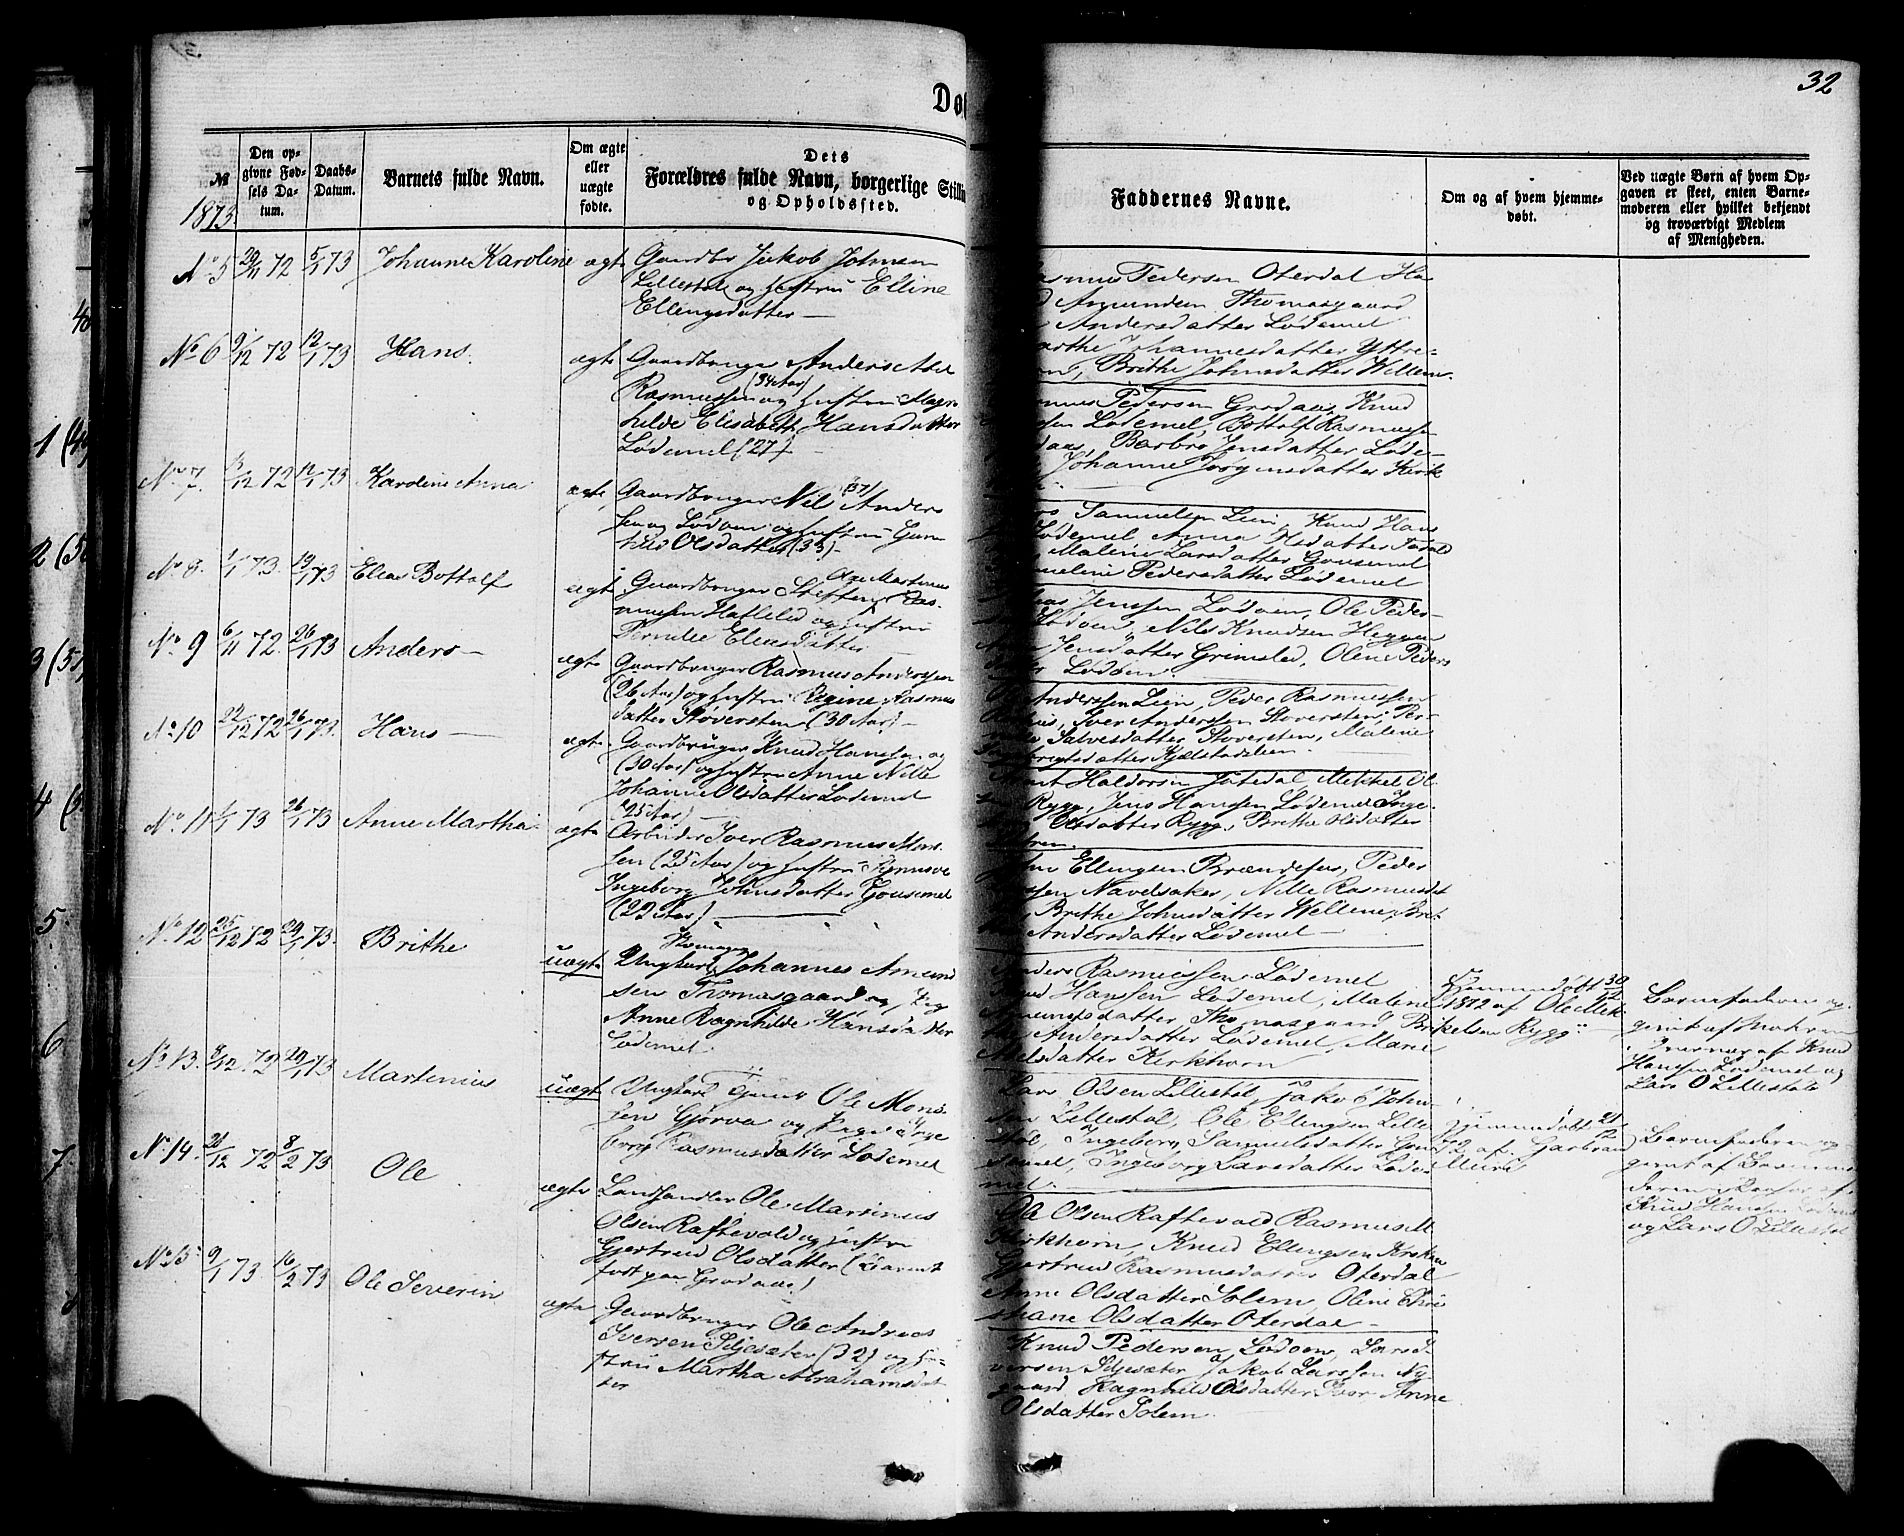 32
Døb
№
1873
Den op-
givne Fød-
sels Da-
tum.
Daabs-
Datum.
Barnets fulde Navn.
Om ægte
eller
uægte
fødte.
Dets
Forældres fulde Navn, borgerlige Stilli
og Opholdssted.
Faddernes Navne.
Om og af hvem hjemme-
døbt.
Ved uægte Børn af hvem Op-
gaven er skeet, enten Barne-
moderen eller hvilket bekjendt
og troværdigt Medlem
af Menigheden.
No 5 29/11 72 5/1 73 Johanne Karoline ægte
Gaardbr Jakob Johnsen
Lillestøl og hustru Elline
Ellingsdatter
asmus Pedersen Oterdal Ha
Amundsen Thomasgaard
Andersdatter Lødemel
arthe Johannesdatter Yttre-
Brithe Johnsdatter Wellene.
No 6 9/12 72 12/1 73 Hans. ægte
Gaardbruger Anders Abel
Rasmussen (34 Aar) og hustru Magn
hilde Elisabeth Hansdatter
Lødemel (27)
Pedersen Grodaas, Knud
sen Lødemel, Bottolf Rasmuss
daas, Barbro Jensdatter Løde-
Johanne Jørginsdatter Kirk
No 7. 13/12 72 12/1 73 Karoline Anna ægte
Gaardbruger Nils (37) Anders
sen Lødøen og hustru Gun
hild Olsdatter (33)
Samuelsen Lein, Knud Hans
Lødemel Anna Olsdatter
Malene Larsdatter Gousemel
Pedersdatter Lødemel
No 8. 1/1 73. 19/1 73 Elias Bottolf ægte
Gaardbruger Steffen Ole Martinus Ras-
mussen Haflelid og hustru
Pernille Eliasdatter
Jensen, Lødøen, Ole Peder-
Lødøen, Nils Knudsen Heggen
Jensdatter Grimsled, Oline Peders
Lødøen.
No 9 6/11 72 26/1 73 Anders ægte
Gaardbruger Rasmus Anderssen
(26 Aar) og hustru Regine Rasmus
datter Støversten (30 Aar)
Anderssen Lein, Peder Rasmussen
Iver Anderssen Støversten, Per-
Salvesdatter Støversten, Malene
datter Kjølstadlien
No 10 22/12 72 26/1 73. Hans ægte
Gaardbruger Knud Hansen og
(30 Aar) og hustru Anne Nille
Johanne Olsdatter Lødemel
(25 Aar)
Haldorsen Jutedal Mikkel Ol
Rygg, Jens Hansen Lødemel Inge
Olsdatter Rygg, Brithe Olsdatter
No 11 1/1 73 26/1 73 Anne Martha ægte
Arbeider Iver Rasmus Mons
sen (25 Aar) og hustru
Ingeborg Johnsdatter Gousemel
(22 Aar)
Ellingsen Brændefur, Peder
ssen Navelsaker, Nille Rasmusdat
Brithe Johnsdatter Wellene, Brit
Andersdatter Lødemel
No 12 25/12 72 29/1 73. Brithe uægte
Ungkarl Johannes Amund
sen Thomasgaard og Pige
Anne Ragnhilde Hansdatter
Lødemel.
Anders Rasmussen Lødemel
Hansen Lødemel, Malene
datter Thomasgaard, Bri
Andersdatter Lødemel, Marie
Nilsdatter Kirkhorn
Hjemmedøbt 30/12
1872 af Ole Mik
kelsen Rygg
Barnefaderen op
givet af Moderen
i Nærvær af Knud
Hansen Lødemel og
Lars O Lillestøl
No 13. 9/12 72 29/1 73 Martinius uægte
Ungkarl Ole Mons
sen Gjørva og Pige Inge
borg Rasmusdatter Lødemel
Lars Olsen Lillestøl, Jakob John-
sen Lillestøl, Ole Ellingsen Lille
støl, Ingeborg Samuelsdatter Gou
semel, Ingeborg Larsdatter Løde
mel.
Hjemmedøbt 21/12
72 af
Barnefaderen op
givet af Barnemo
deren i Nærvær af
Knud Hansen Lødemel
og Lars O Lillestøl
No 14. 21/12 72 8/2 73 Ole ægte
Landhandler Ole Martinus
Olsen Raftevold og hustru
Gjertrud Olsdatter (Barnet
født paa Grodaas)
Ole Olsen Raftevold Rasmus M
Kirkhorn, Knud Ellingsen Kirkhor
Gjertrud Rasmusdatter Oterdal
Anne Olsdatter Solem, Oline Chri
stiane Olsdatter Oterdal
No 15 9/1 73 16/2 73 Ole Severin ægte
Gaardbruger Ole Andreas
Iversen Seljesæter (32) og hu-
stru Martha Abrahamsdat
ter
Knud Pedersen Lødøen, Lars I
versen Seljesæter Jakob Larssen Ny-
gaard Ragnhild Olsdatter Anne
Olsdatter Solem.
1
2
3
4
5.
6
7.